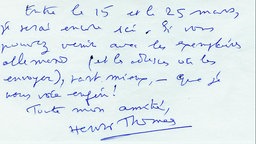 Entre le 15 et le 25 mars,
je serai encore ici. Si vous
pouvez venir avec les exemplaires
allemand (et les
envoyer), tant mieux, – que je
vous voie enfin!
Toute mon amitié,
Henri Thomas